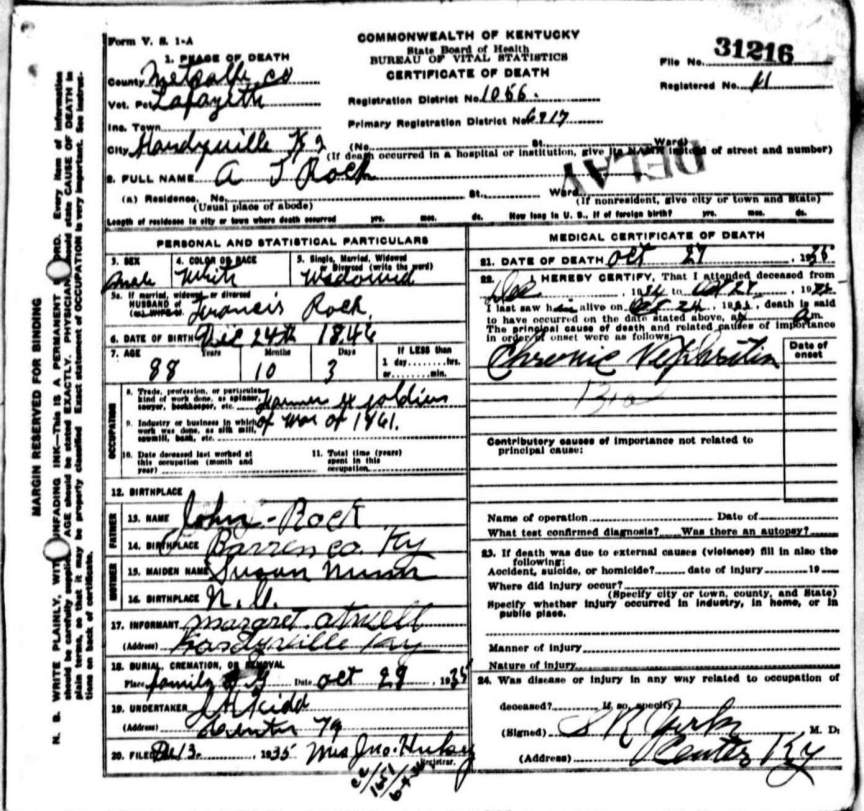 Form V. S. 1-A
COMMONWEALTH OF KENTUCKY
State Board of Health
BUREAU OF VITAL STATISTICS
CERTIFICATE OF DEATH
File No. 31216
Registered No. 11
1. PLACE OF DEATH
County Metcalfe co
Vot. Pct. Lafayette
Inc. Town
City Hardyville
Registration District No. 1055.
Primary Registration District No. 6917
(No. St. Ward)
(If death occurred in a hospital or institution, give its NAME instead of street and number)
DELAY
2. FULL NAME A J Rock
(a) Residence. No. St. Ward
(Usual place of abode) (If nonresident, give city or town and State)
Length of residence in city or town where death occurred yrs. mos. ds. How long in U. S., if of foreign birth? yrs. mos. ds.
PERSONAL AND STATISTICAL PARTICULARS
3. SEX male
4. COLOR OR RACE White
5. Single, Married, Widowed or Divorced (write the word) Widowed
5a. If married, widowed or divorced
HUSBAND of Francis Rock.
(or) WIFE of
6. DATE OF BIRTH Dec 24th 1846
7. AGE 88 Years 10 Months 3 Days If LESS than 1 day hrs. or min.
OCCUPATION
8. Trade, profession, or particular kind of work done, as spinner, sawyer, bookkeeper, etc. Farmer & soldier
9. Industry or business in which work was done, as silk mill, sawmill, bank, etc. of War of 1861.
10. Date deceased last worked at this occupation (month and year)
11. Total time (years) spent in this occupation
12. BIRTHPLACE
FATHER
13. NAME John Rock
14. BIRTHPLACE Barren co. Ky
MOTHER
15. MAIDEN NAME Susan Nunn
16. BIRTHPLACE
17. INFORMANT Margret Atwell
(Address) Hardyville Ky
18. BURIAL, CREMATION, OR REMOVAL
Place family Date Oct 29, 1935
19. UNDERTAKER Kidd
(Address) Center Ky
20. FILED 13. 1935 Mrs Jno. Registrar.
MEDICAL CERTIFICATE OF DEATH
21. DATE OF DEATH Oct 27, 1935
22. I HEREBY CERTIFY, That I attended deceased from
Dec, 1934 to Oct 27, 1935
I last saw him alive on Oct 24, 1935, death is said
to have occurred on the date stated above, at m.
The principal cause of death and related causes of importance
in order of onset were as follows:
Date of onset
Chronic Nephritis
Contributory causes of importance not related to
principal cause:
Name of operation Date of
What test confirmed diagnosis? Was there an autopsy?
23. If death was due to external causes (violence) fill in also the
following:
Accident, suicide, or homicide? date of injury 19
Where did injury occur?
(Specify city or town, county, and State)
Specify whether injury occurred in industry, in home, or in
public place.
Manner of injury
Nature of injury
24. Was disease or injury in any way related to occupation of
deceased? If so, specify
(Signed) M. D.
(Address) Center Ky
MARGIN RESERVED FOR BINDING
N. B. WRITE PLAINLY, WITH UNFADING INK—THIS IS A PERMANENT RECORD. Every item of information
should be carefully supplied. AGE should be stated EXACTLY. PHYSICIANS should state CAUSE OF DEATH in
plain terms, so that it may be properly classified. Exact statement of OCCUPATION is very important. See instruc-
tions on back of certificate.